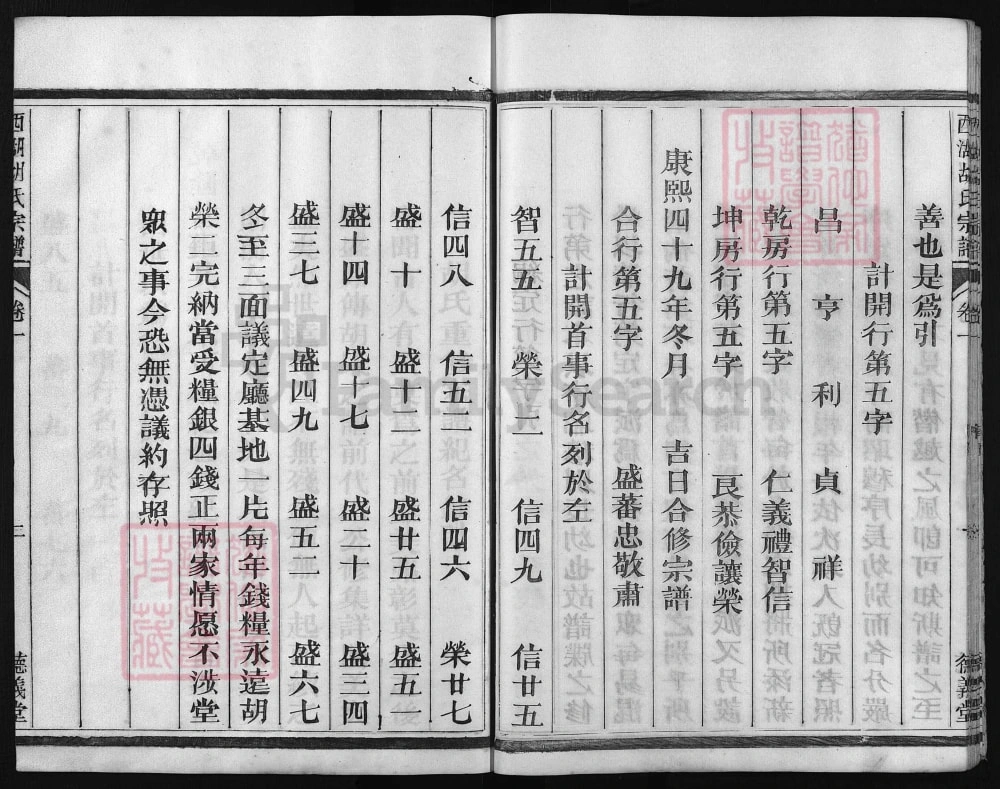 西湖胡氏宗譜 卷一 德義堂
善也是爲引
計開行第五字
昌 亨 利 貞 祥
乾房行第五字 仁義禮智信
坤房行第五字 良恭儉讓榮
康熙四十九年冬月 吉日合修宗譜
合行第五字 盛蕃忠敬肅
計開首事行名列於左
智五五 榮十二 信四九 信廿五
信四八 信五二 信四六 榮廿七
盛十 盛十二 盛廿五 盛五一
盛十四 盛十七 盛二十 盛三四
盛三七 盛四九 盛五二 盛六七
冬至三面議定廳基地一片每年錢糧永遠胡
榮二完納當受糧銀四錢正兩家情愿不涉堂
眾之事今恐無憑議約存照
西湖胡氏宗譜 卷一 三 德義堂
FamilySearch